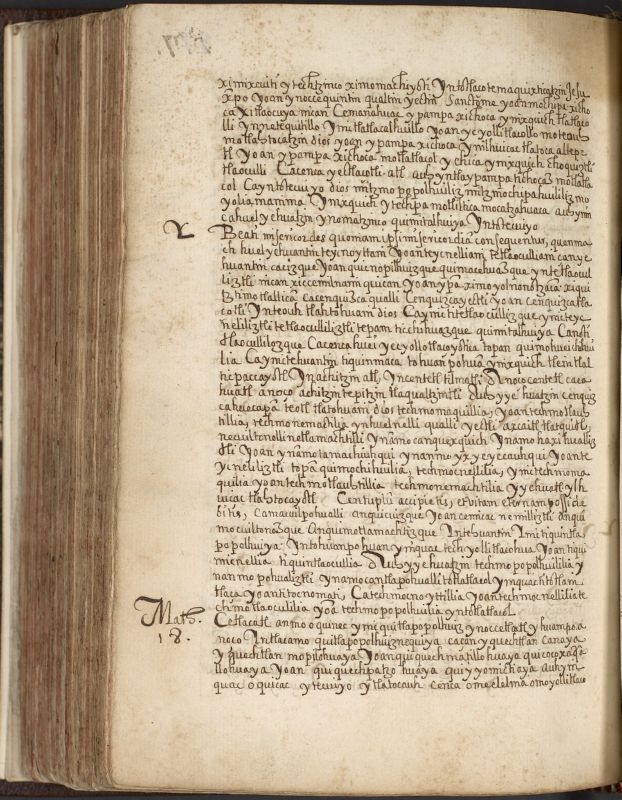 ximixcuiti ytechtzinco ximomachiyoti Yntotlaçotemaquixticatzin Jesu
xpo yoan ynoccequintin qualtin yectin Sanctome yoan mochipa xicho
ca xitlaocuya nican Cemanahuac ypampa xichoca ymixquich tlatlaco
lli ynnetequitillo Ymitlatlacalhuillo Yoan yc yollitlacollo moteouh
motlatocatzin dios yoan ypampa xichoca ymilhuicac tlatoca altepe
tl Yoan ypampa xichoca motlatlacol
tlaoculli Cacenca yectlaçotli atl auh yntla ypampa tichocaz motlatla
col Cayntotecuiyo dios mitzmopopolhuiliz mitzmochipahuililizmo
yolia manima Ymixquich ytechpa motlilticca mocatzahuaca auh yniuh
cahuel yehuatzin ynomatzinco quimitalhuiya Yntotecuiyo
Beati misericordes quoniam ipsi misericordiam consequentur, quenma
ch huelyehuantin teycnoyttani Yoanteycnelliani tetlaoculliani canye
huantin cacizque Yoan quicnopilhuizque quimacehuazque yntetlaocul
liztli nican xiccemilnamiquican Yoan ypan ximoyolnonotzacan xiqui
tztimotlallican cacenquizca qualli Cenquizcayectli Yoan cenquizcatla
çotli Inteouh tlahtohuani dios Caymichtetlaocullizque ynicteyc
neliliztli tetlaoculliliztli tepan ticchihuazque quimitalhuiya Canoti
tlaocullilozque Cacenca huei yceyollotlacoyotica topan quimochihui
lia Caymictehuantin tiquinmaca tohuanpohuan ymixquich tleintlal
ticpaccayotl Ynachitzin atl, Yncentetl tilmatl, Anoço centetl caca
huatl anoço achitzin tepitzin tlaqualtzintli auh yyehuatzin cenquiz
cahuecapan teotl tlatohuani dios techmomaquillia, yoan techmotlauh
tillia, techmonemactilia ynhuelnelli qualli yectli axcaitl tlatquitl,
necuiltonolli netlamachtilli ynamo canquexquich Ynamo haxihualliz
tli Yoan ynamo tamachiuhqui ynanmo yxyeyecauhqui Yoante
ycneliliztli topan quimochihuilia, techmocnellilia, Ymitechmoma
quilia yoan techmotlauhtillia techmonemachtilia yyehuatl ylh
uicac tlahtocayotl Centuplum accipietis, et vitam eternam possi de
bitis, Camacuilpohualli anquicuizque Yoan cemicac nemilliztli anqui
mocuiltonozque Anquimotlamachtizque Intehuantin Inictiquintla
popolhuiya Intohuanpohuan yniquac techyollitlacohua Yoan tiqui
micnellia tiquintlaocullia Auh yyehuatzin techmopopolhuilia y
nanmo pohualiztli ynamo cantlapohualli totlatlacol ynquachtitlan
tlaca yoan titocnomati, Catechmocnoyttillia Yoan techmocnellilia te
chmotlaoculilia yoan techmopopolhuilia yntotlatlacol.
Math. 18.
Cetlacatl anmo oquinec ynic quitlapopolhuiz ynoccetlatl yhuanpo a
noço Intlacamo quitlapopolhuiznequiya caçan yquechtlan canaya
yquechtlan mopillohuaya Yoan quiquechmatillohuaya quicocopaqui
llohuaya yoan quiquechpatzohuaya quiyyomictiaya auh yn
quac oquicac yteucyo ytlatocauh cenca omoelelma omoyollitlaco